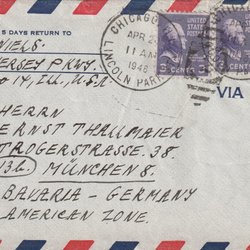 5 DAYS RETURN TO
NIELS.
ERSEY PKWY.
O 14, ILL., U.S.A.
CHICAGO
APR 2
11 AM
1948
LINCOLN PARK
UNITED STATES
POSTAGE
3 CENTS 3
VIA
HERRN
ERNST THALLMAIER
TROGERSTRASSE. 38.
13b. MÜNCHEN 8.
BAVARIA - GERMANY
AMERICAN ZONE.